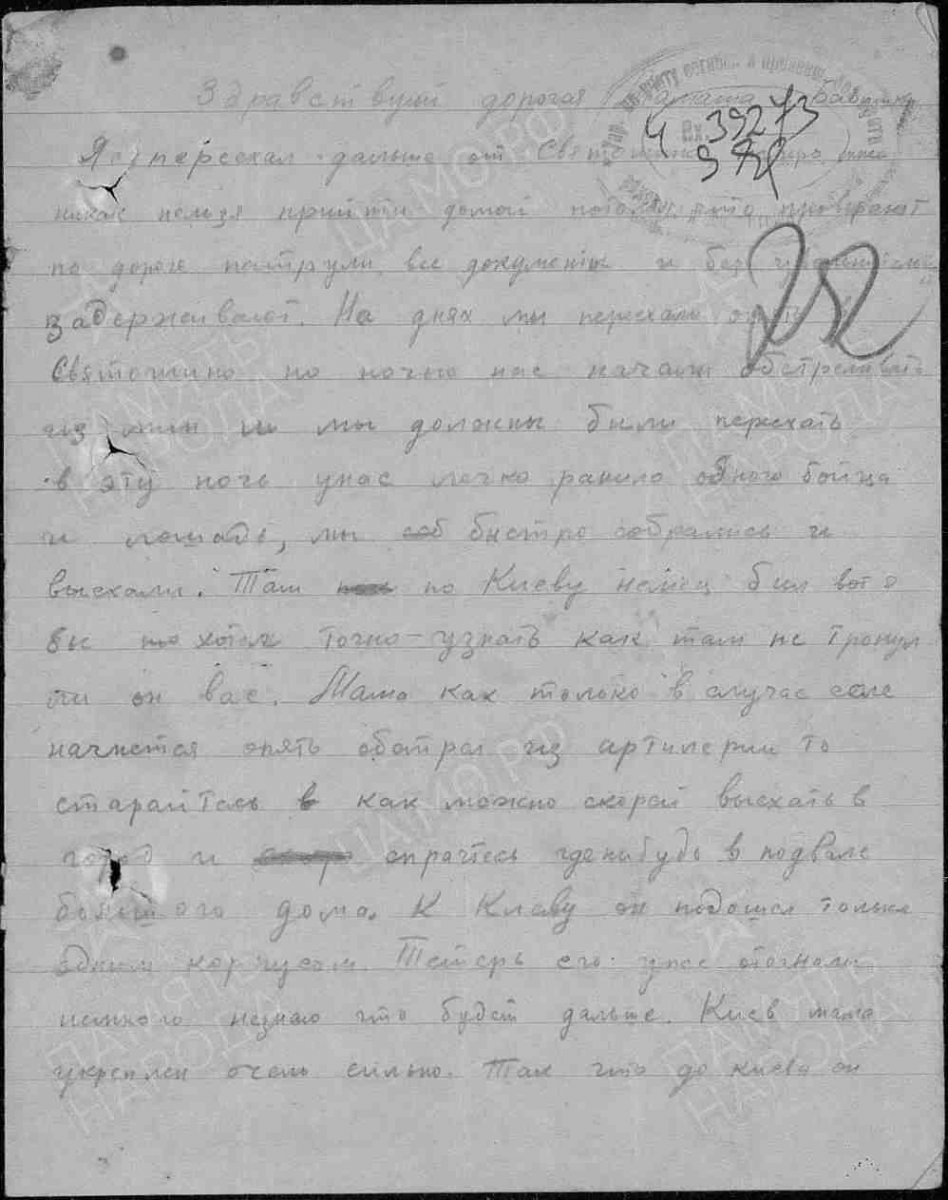 Здравствуй дорогая мамаша и бабушка
Я переехал дальше от Святошино
никак нельзя прийти домой потому что проверяют
по дороге патрули все документы и без
задерживают. На днях мы переехали опять в
Святошино но ночью нас начали обстреливать
из мин и мы должны были переехать
в эту ночь унас легко ранило одного бойца
и лошадь, мы быстро собрались и
выехали. Там по Киеву немец бил вот я
бы хотел точно узнать как там не тронул
ли он вас. Мама как только в случае если
начнется опять обстрел из артилерии то
старайтесь как можно скорей выехать в
город и спрачтесь где нибудь в подвале
большого дома. К Киеву он подошел только
одним корпусом. Теперь его унас отогнали
немного незнаю что будет дальше. Киев мама
укреплен очень сильно. Так что до киева он
Ч 39273
252
ПАМЯТЬ НАРОДА
ЦАМО РФ